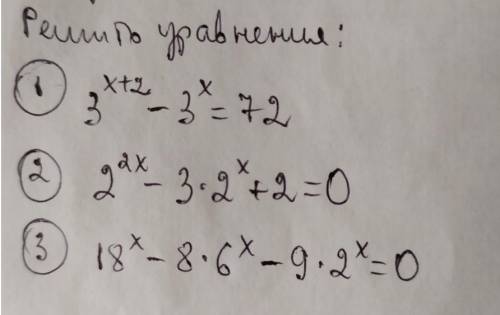 Решить уравнения:
① 3^{x+2} - 3^x = 72
② 2^{2x} - 3·2^x + 2 = 0
③ 18^x - 8·6^x - 9·2^x = 0